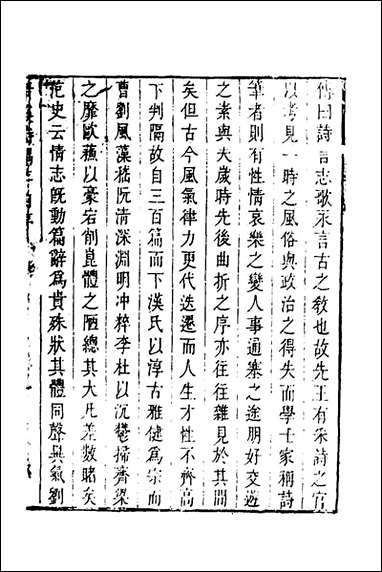 傳曰詩言志歌永言古之教也故先王有采詩之官
以考見一時之風俗與政治之得失而學士家稱詩
筆者則有性情哀樂之變人事通塞之途朋好交遊
之素與夫歲時先後曲折之序亦往往雜見於其間
矣但古今風氣律力更代迭遷而人生才性不齊高
下判隔故自三百篇而下漢氏以淳古雅健為宗而
曹劉風藻嵇阮清深淵明冲粹李杜以沉鬱掃齊梁
之靡歐蘇以豪宕削崑體之陋總其大凡差數睹矣
范史云情志既動篇辭為貴殊狀其體同聲異氣劉